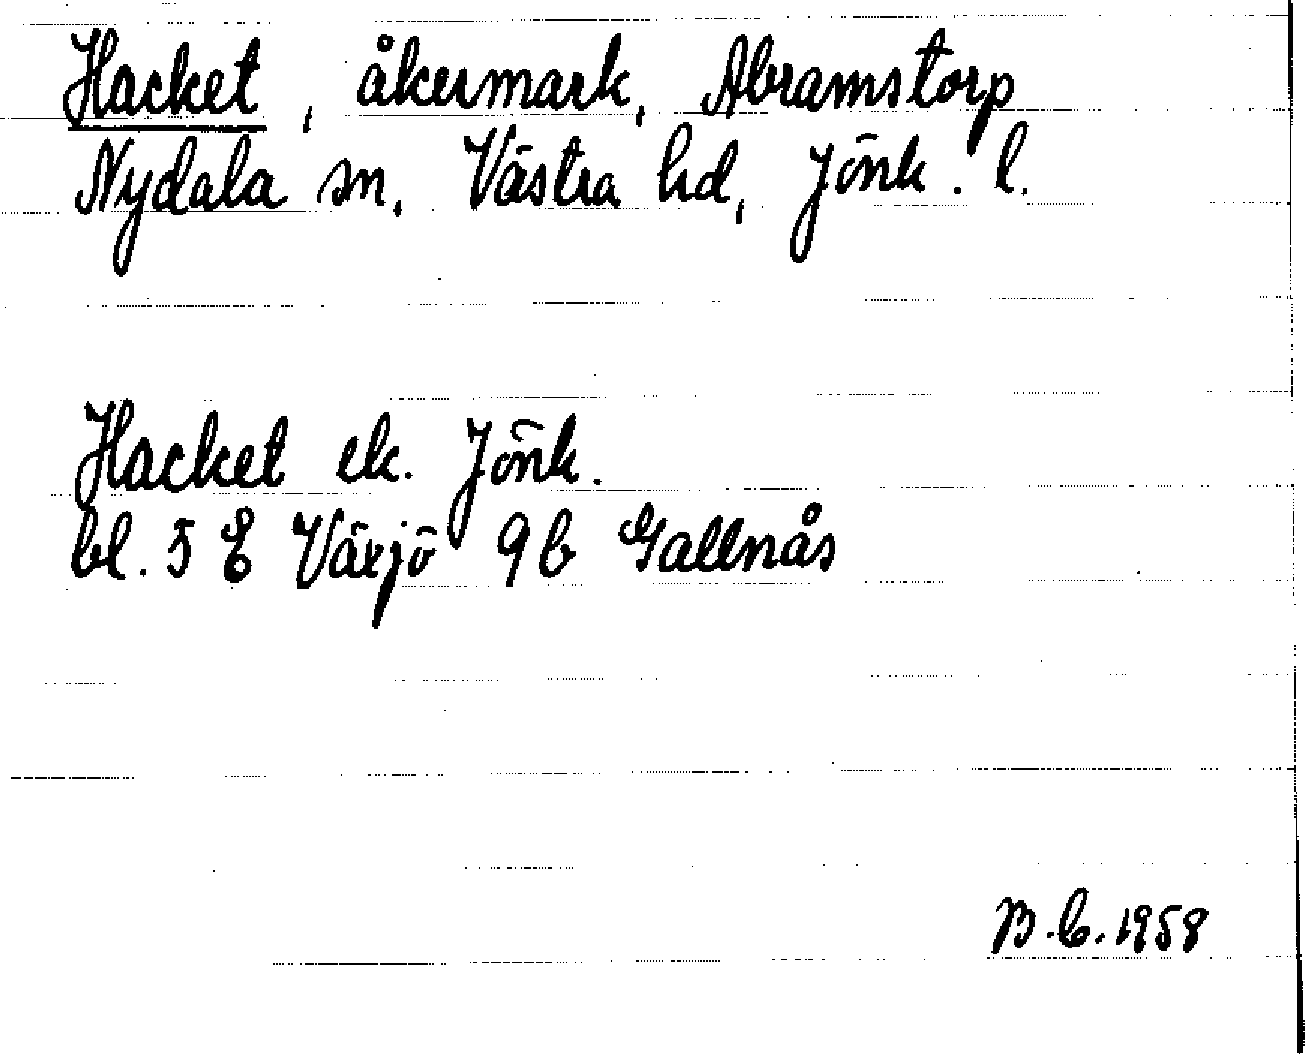 Hacket, åkermark, Abramstorp
Nydala sn, Västra hd, Jönk. l.
Hacket ek. Jönk.
bl. 5 E Växjö 9b Gallnås
B.C. 1958